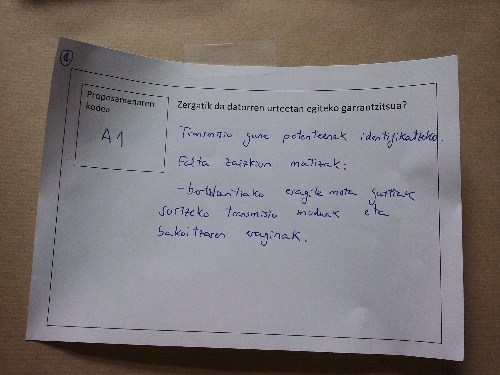 1
Proposamenaren
kodea
A1
Zergatik da datorren urteetan egiteko garrantzitsua?
Transmisio gune potenteenak identifikatzeko.
Falta zaizkion matizak:
- bertsolaritzako eragile mota guztiak
sortzeko transmisio moduak eta
bakoitzaren eraginak.